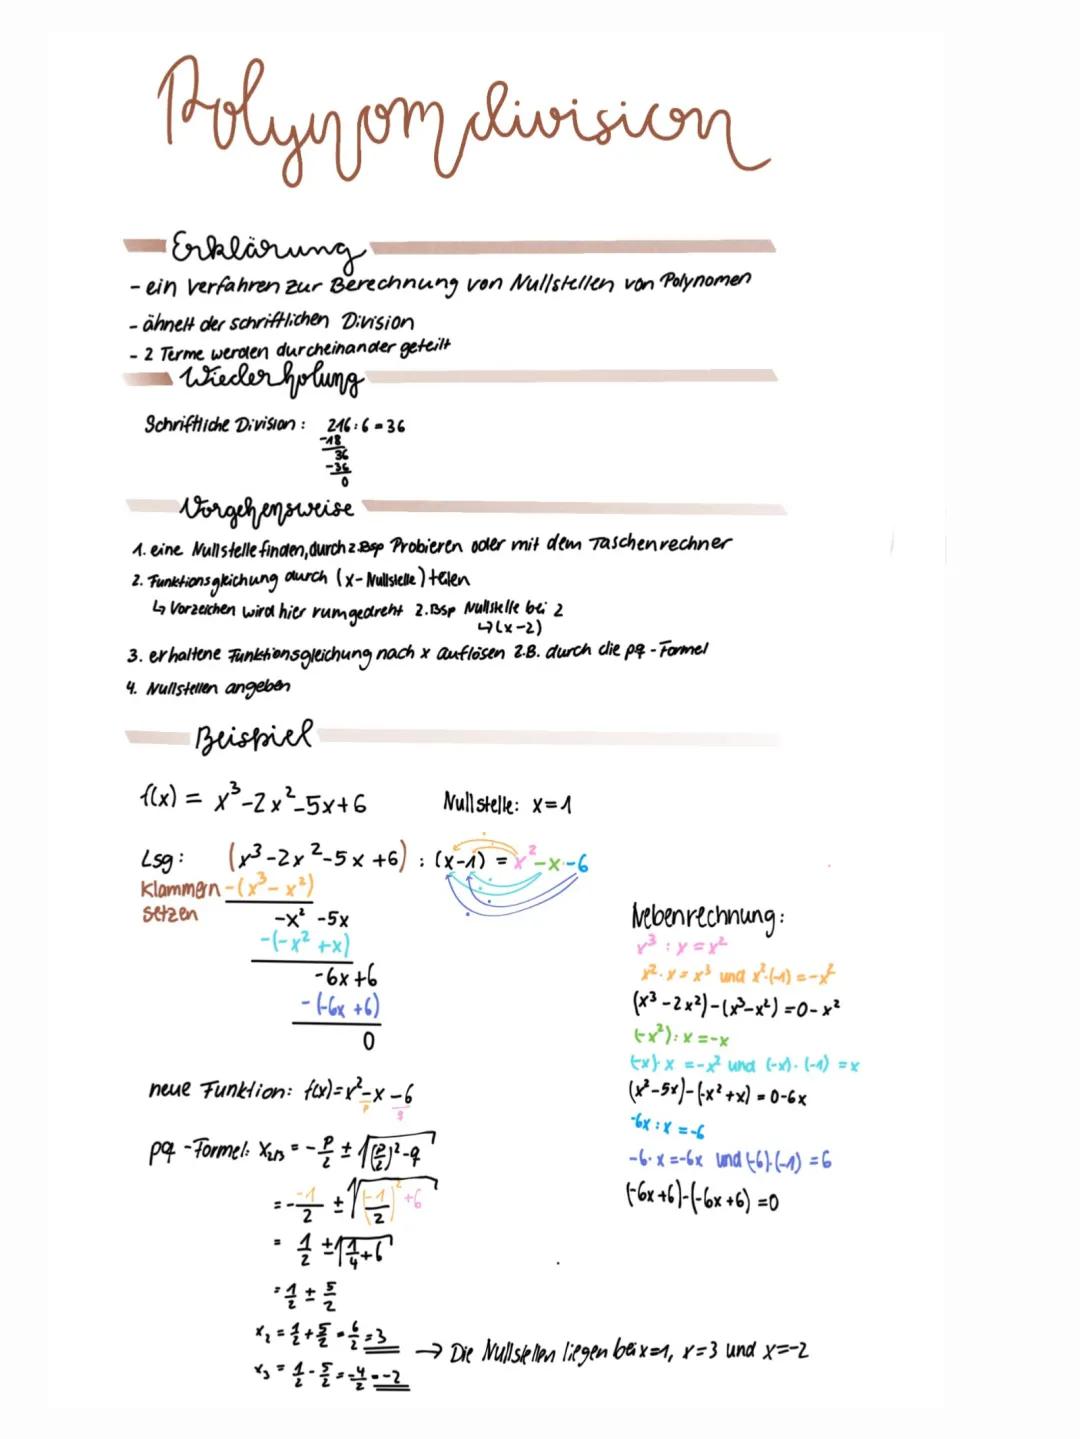 Polynomdivision
Erklärung
- ein Verfahren zur Berechnung von Nullstellen von Polynomen
- ähnelt der schriftlichen Division
- 2 Terme werden durcheinander geteilt
Wiederholung
Schriftliche Division : 216 : 6 = 36
-18
36
-36
0
Vorgehensweise
1. eine Nullstelle finden, durch z.Bsp Probieren oder mit dem Taschenrechner
2. Funktionsgleichung durch (x - Nullstelle) teilen
↳ Vorzeichen wird hier rumgedreht z.Bsp Nullstelle bei 2
↳ (x-2)
3. erhaltene Funktionsgleichung nach x auflösen z.B. durch die pq - Formel
4. Nullstellen angeben
Beispiel
f(x) = x³-2x²-5x+6 Nullstelle: x=1
Lsg: (x³-2x²-5x+6) : (x-1) = x²-x-6
Klammern -(x³-x²)
setzen -x² -5x
-(-x² +x)
-6x+6
-(-6x +6)
0
Nebenrechnung:
x³ : x = x²
x² · x = x³ und x²·(-1) = -x²
(x³-2x²)-(x³-x²) = 0-x²
(-x²) : x = -x
(-x)· x = -x² und (-x)·(-1) = x
(x²-5x)-(-x²+x) = 0-6x
-6x : x = -6
-6· x = -6x und (-6)·(-1) = 6
(-6x+6)-(-6x+6) = 0
neue Funktion: f(x)=x²-x-6
p q
pq - Formel: x₂/₃ = -p/2 ± √((p/2)²-q)
= - -1/2 ± √((-1/2)²+6)
= 1/2 ± √(1/4+6)
= 1/2 ± 5/2
x₂ = 1/2 + 5/2 = 6/2 = 3 → Die Nullstellen liegen bei x=1, x=3 und x=-2
x₃ = 1/2 - 5/2 = -4/2 = -2